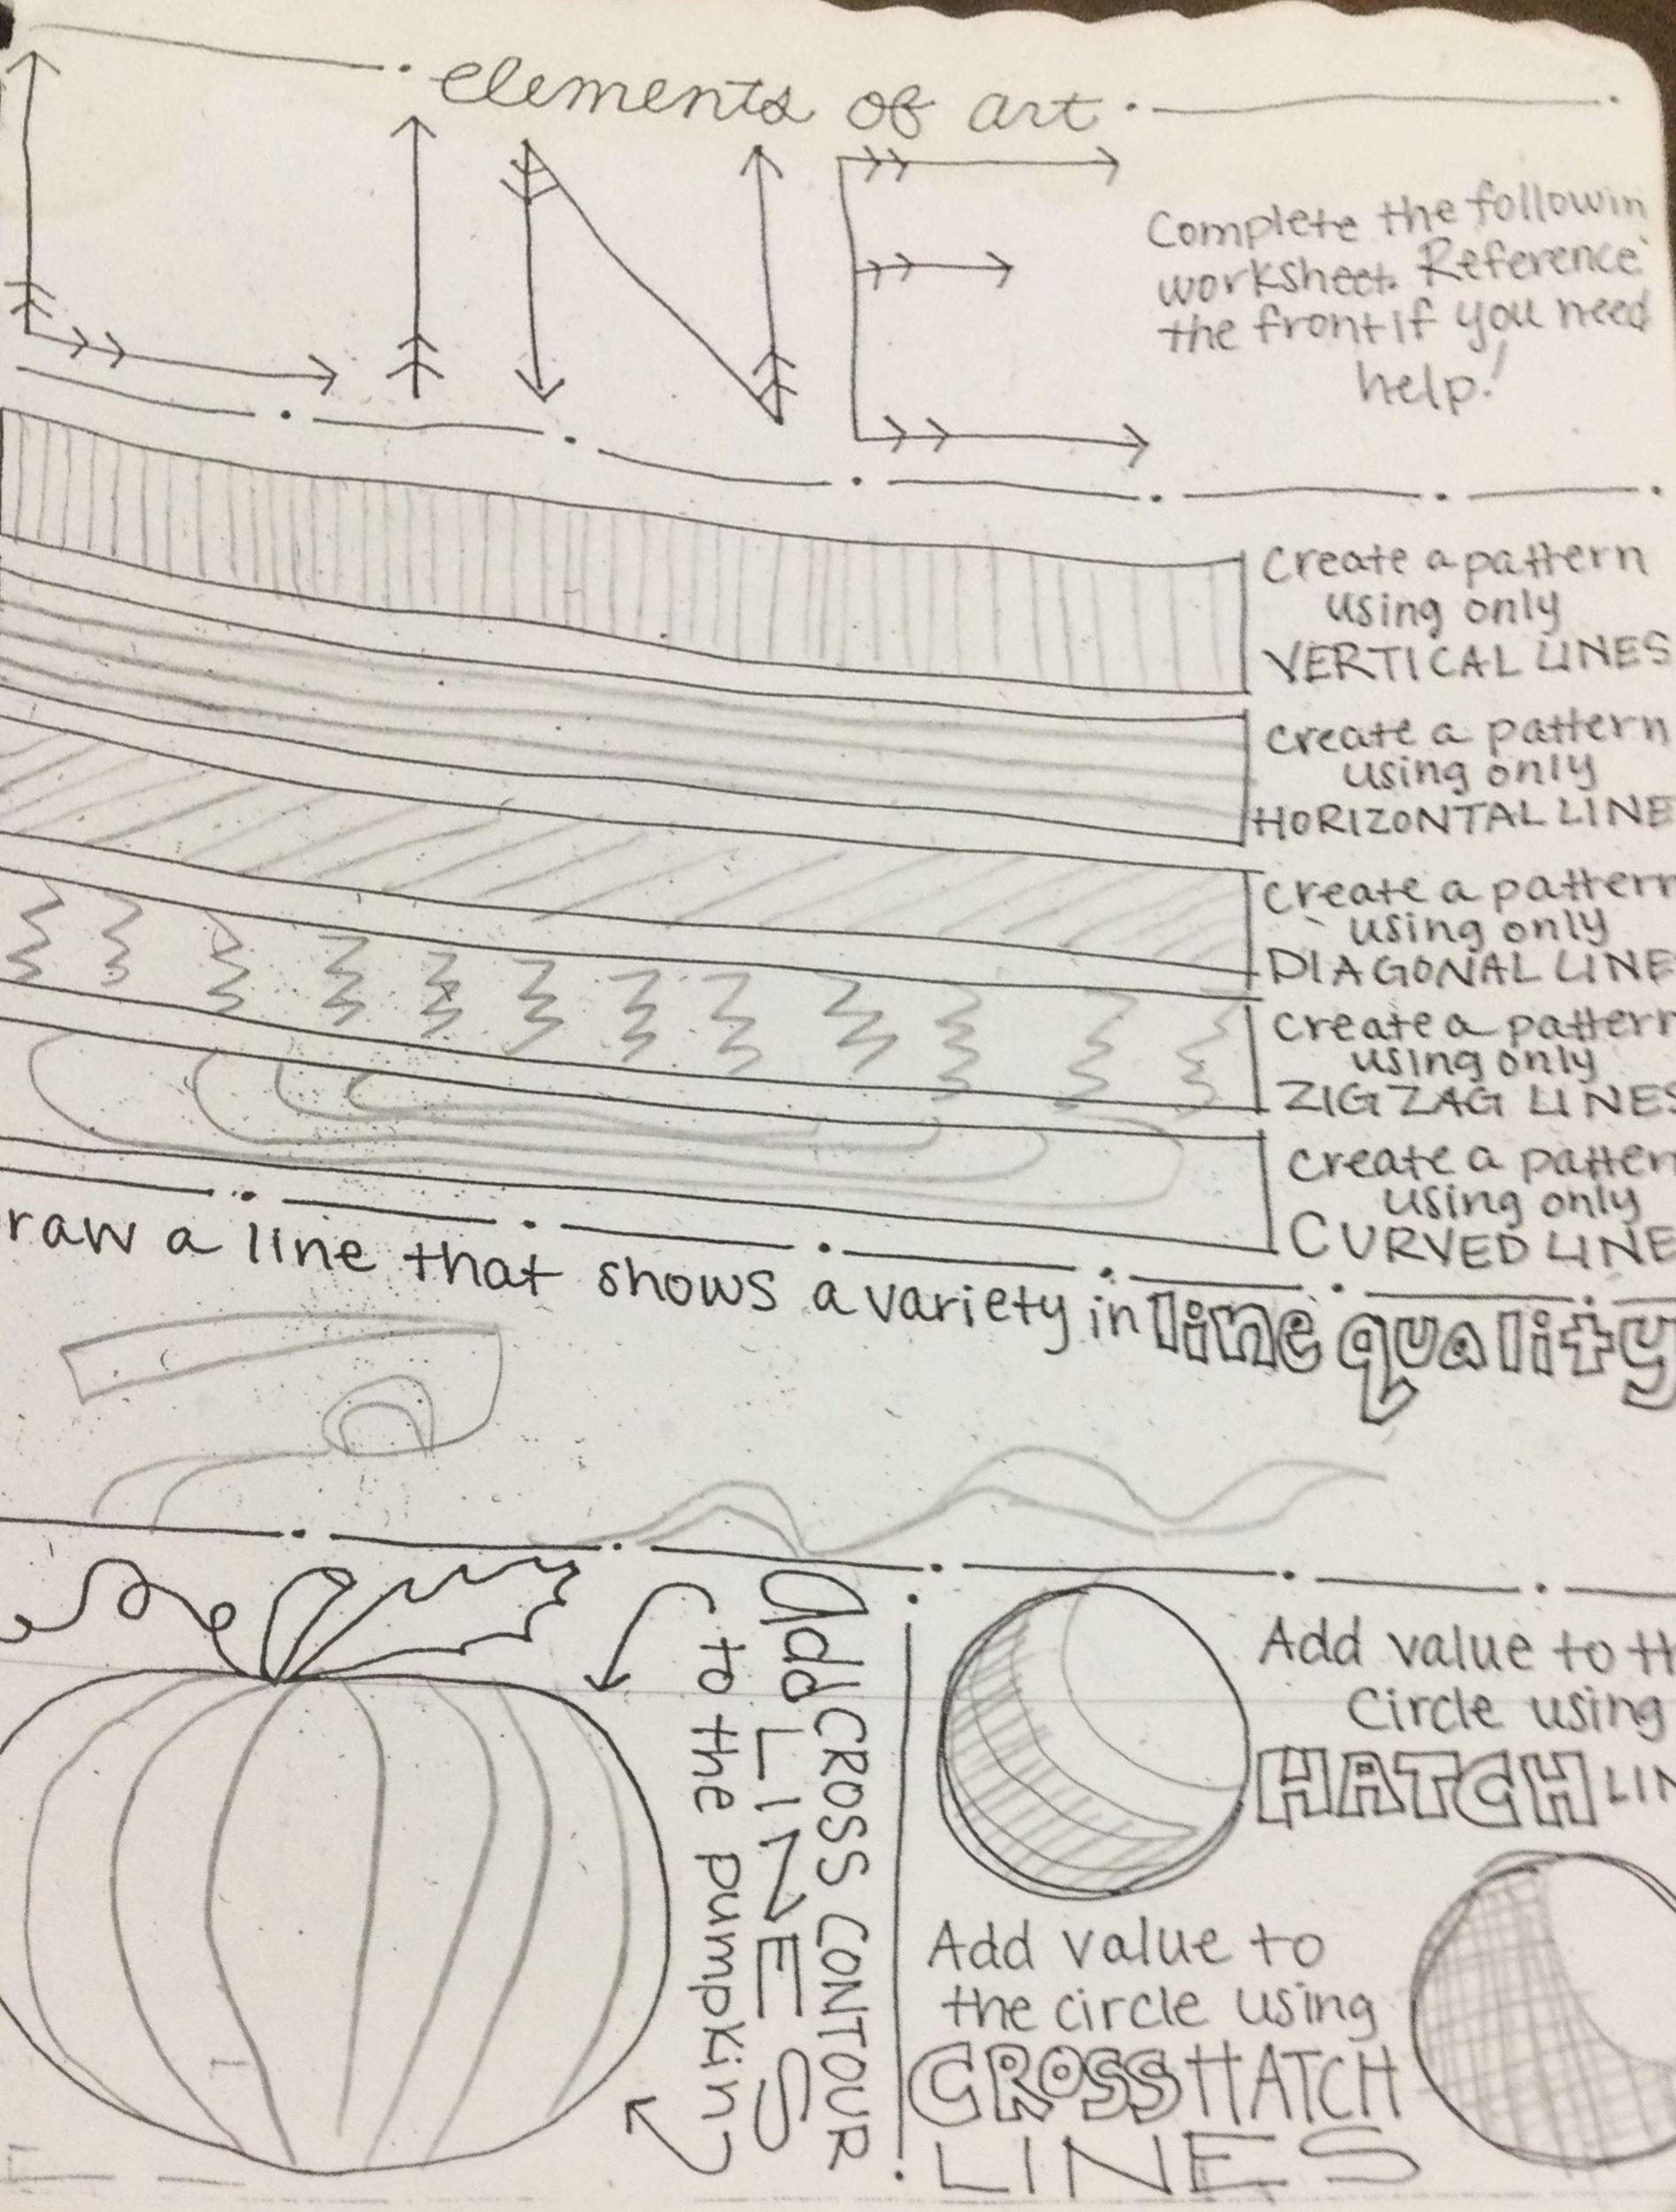 elements of art
LINE
Complete the followin
worksheet. Reference
the front if you need
help!
Create a pattern
using only
VERTICAL LINES
Create a pattern
using only
HORIZONTAL LINE
Create a pattern
using only
DIAGONAL LINE
Create a pattern
using only
ZIGZAG LINES
Create a patter
using only
CURVED LINE
raw a line that shows a variety in line quality
Add CROSS CONTOUR
LINES
to the pumpkin
Add value to th
Circle using
HATCH LIN
Add value to
the circle using
CROSSHATCH
LINES